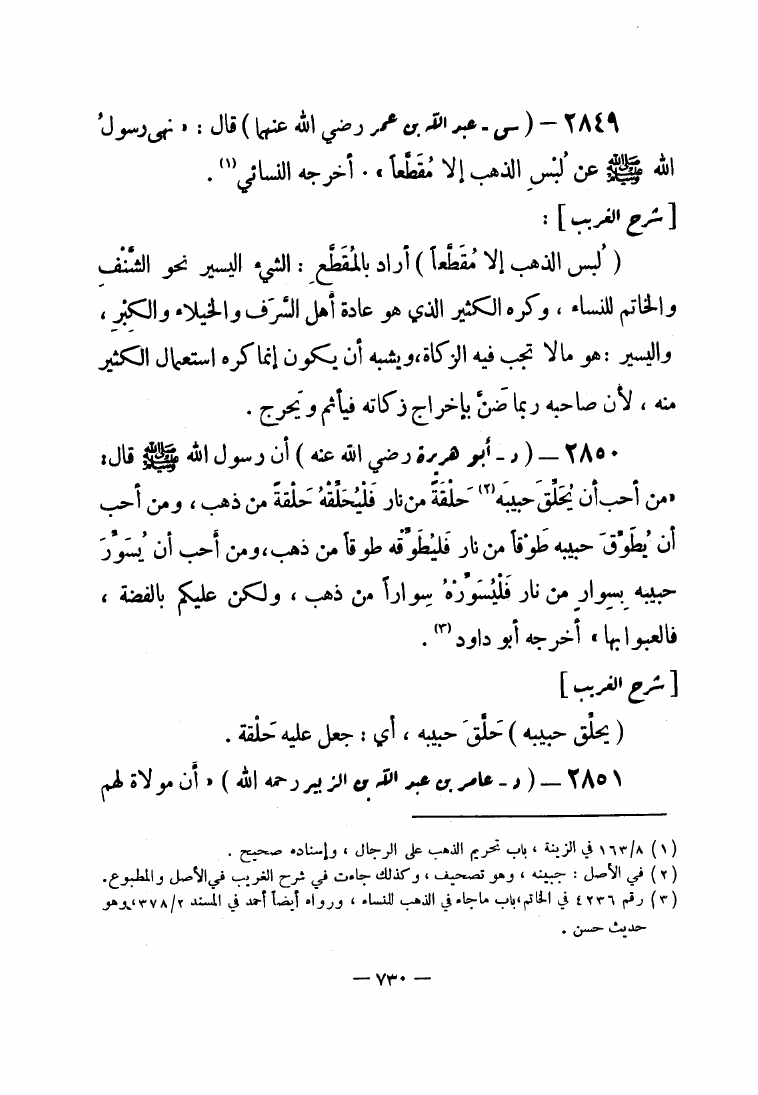 ٢٨٤٩ — ( س - عبد الله بن عمر رضي الله عنهما ) قال : « نهى رسولُ
الله ﷺ عن لُبْسِ الذهب إلا مُقَطَّعاً » . أخرجه النسائي (١) .
[ شرح الغريب ] :
( لُبس الذهب إلا مُقَطَّعاً ) أراد بالمُقَطَّعِ : الشيء اليسير نحو الشَّنْفِ
والخاتم للنساء ، وكره الكثير الذي هو عادة أهل السَّرَف والخيلاء والكِبْرِ ،
واليسير : هو مالا تجب فيه الزكاة، ويشبه أن يكون إنما كره استعمال الكثير
منه ، لأن صاحبه ربما ضَنَّ بإخراج زكاته فيأثم ويَحرج .
٢٨٥٠ — ( د - أبو هريرة رضي الله عنه ) أن رسول الله ﷺ قال:
«من أحب أن يُحَلِّقَ حبيبَه (٢) حَلْقَةً من نار فَلْيُحَلِّقْهُ حَلْقةً من ذهب ، ومن أحب
أن يُطَوِّقَ حبيبه طَوْقاً من نار فليُطَوِّقه طوقاً من ذهب، ومن أَحب أن يُسَوِّرَ
حبيبه بِسِوارٍ من نار فَلْيُسَوِّرْهُ سِواراً من ذهب ، ولكن عليكم بالفضة ،
فالعبوا بها » أخرجه أبو داود (٣) .
[ شرح الغريب ]
( يحلِّق حبيبه ) حَلَّقَ حبيبه ، أي : جعل عليه حَلْقة .
٢٨٥١ — ( د - عامر بن عبد الله بن الزبير رحمه الله ) « أن مولاة لهم
(١) ١٦٣/٨ في الزينة ، باب تحريم الذهب على الرجال ، وإسناده صحيح .
(٢) في الأصل : جبينه ، وهو تصحيف ، وكذلك جاءت في شرح الغريب في الأصل والمطبوع.
(٣) رقم ٤٢٣٦ في الخاتم، باب ماجاء في الذهب للنساء ، ورواه أيضاً أحمد في المسند ٣٧٨/٢، وهو
حديث حسن .
— ٧٣٠ —